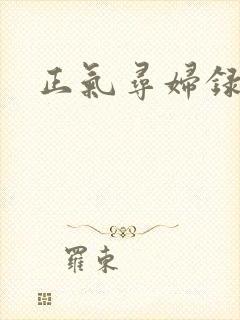 正氣尋婦録
羅東